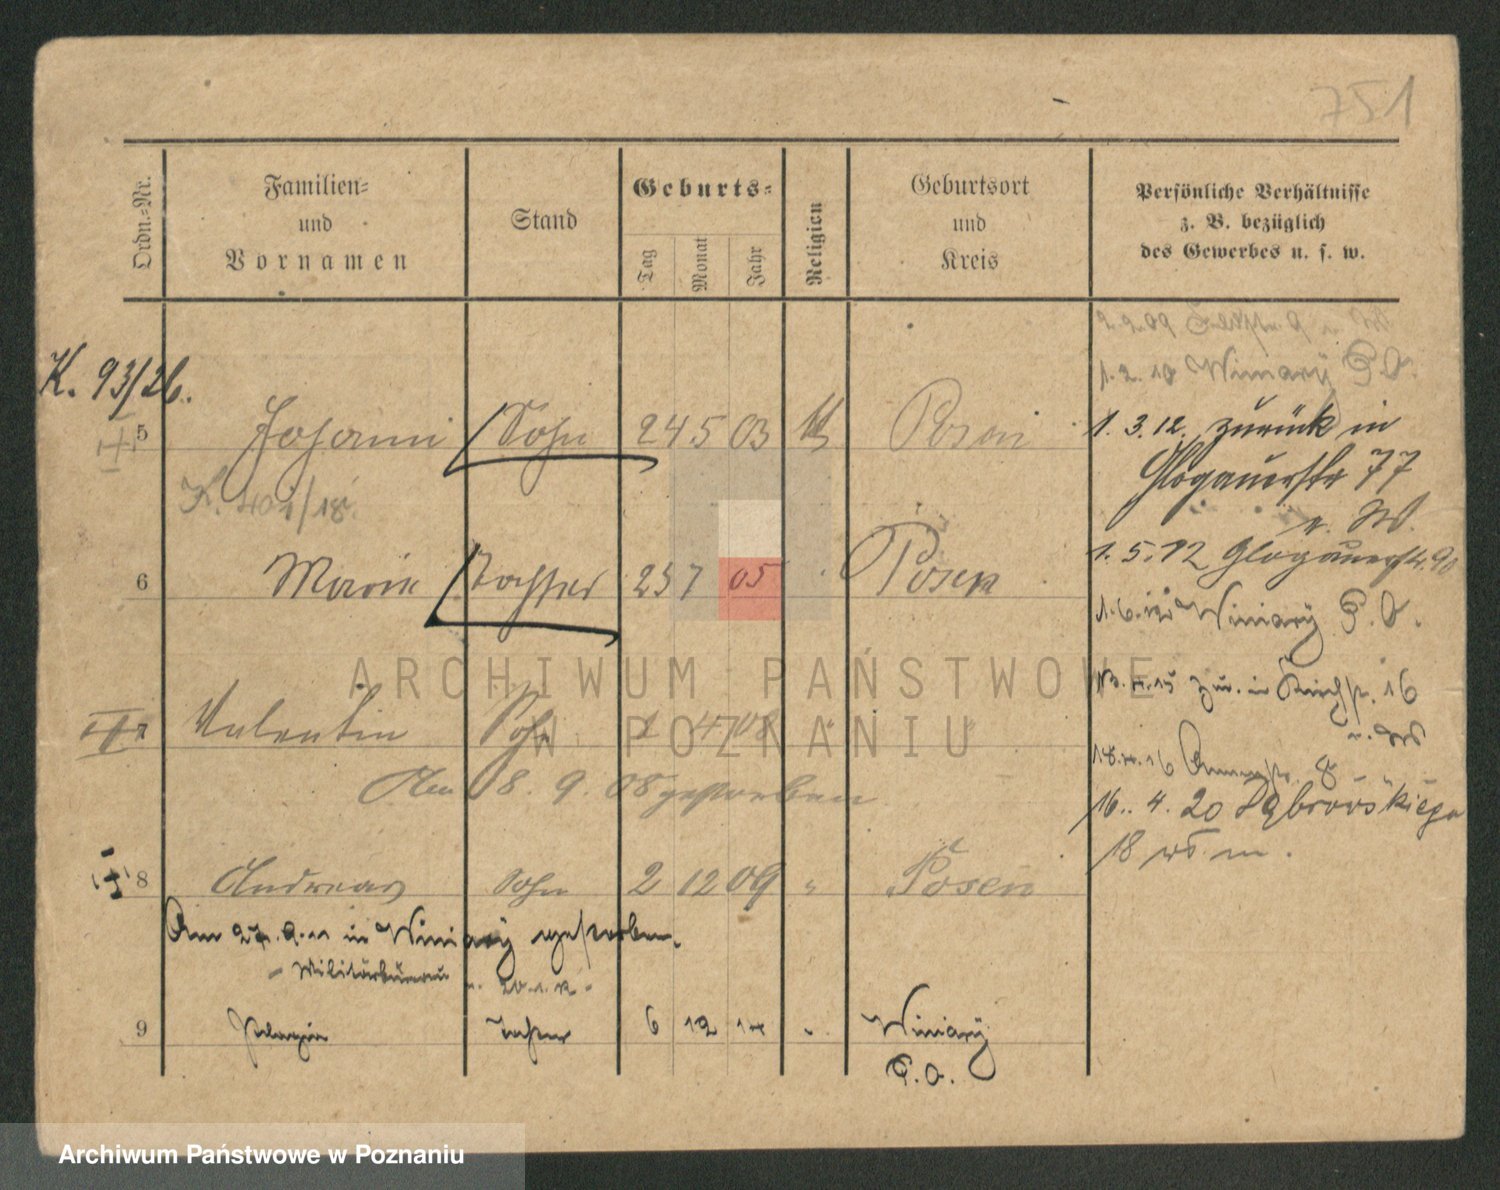 751
Ordn.-Nr.
Familien-
und
Vornamen
Stand
Geburts-
Tag
Monat
Jahr
Religion
Geburtsort
und
Kreis
Persönliche Verhältnisse
z. B. bezüglich
des Gewerbes u. s. w.
K. 93/26.
5 Johann Sohn 24 5 03 Posen
K. 401/18.
6 Marie Tochter 23 7 05 Posen
Valentin Sohn 2 4 08 " "
Am 8. 9. 08 gestorben
8 Andreas Sohn 2 12 09 " Posen
Am 27. 9. 11 in Winiary gestorben.
- Militärbüreau
9 Pelagia Tochter 6 12 14 " Winiary
P. O.
2.2.09
1. 2. 10 Winiary P. O.
1. 3. 12. zurück in
Glogauerstr 77
v. W.
1. 5. 12 Glogauerstr. 90
1. 6. 12 Winiary P. O.
zur. in Kirchstr. 16
v. W
18.4.16 8
16. 4. 20 Dąbrowskiego
18
ARCHIWUM PAŃSTWOWE
W POZNANIU
Archiwum Państwowe w Poznaniu